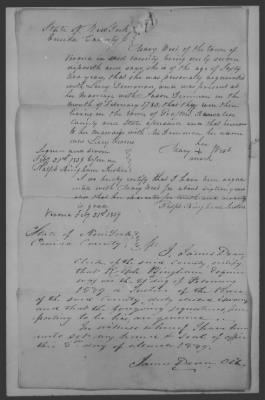 State of New York
Oneida County
Mary West of the town of
Verona in said county being duly sworn
deposeth and says she is of the age of Sixty
five years, that she was personally acquainted
with Lucy Denison, and was present at
her marriage with Denison in the
month of February 1785, that they was then
living in the town of
County and State aforesaid and that previous
to her marriage with Denison her name
was Lucy
her
Mary + West
mark
Signed and sworn
Feby 23rd 1839 before me
Ralph Bingham Justice
I do hereby certify that I have been acquain
ted with Mary West for about eighteen years
and that her character for truth and veracity
is good
Ralph Bingham Justice
Verona Feby 23rd 1839
State of New York
Oneida County ss
I, James Dean,
Clerk of the said County certify
that Ralph Bingham Esquire
was on the 23 day of February
1839 a Justice of the Peace
of the said County, duly
and that the foregoing signatures pur
porting to be his, are genuine
In witness whereof I have here
unto set my hand & seal of office
this 2nd day of March 1839.
James Dean Clk.